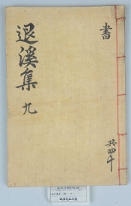 書
退溪集 九
共四十